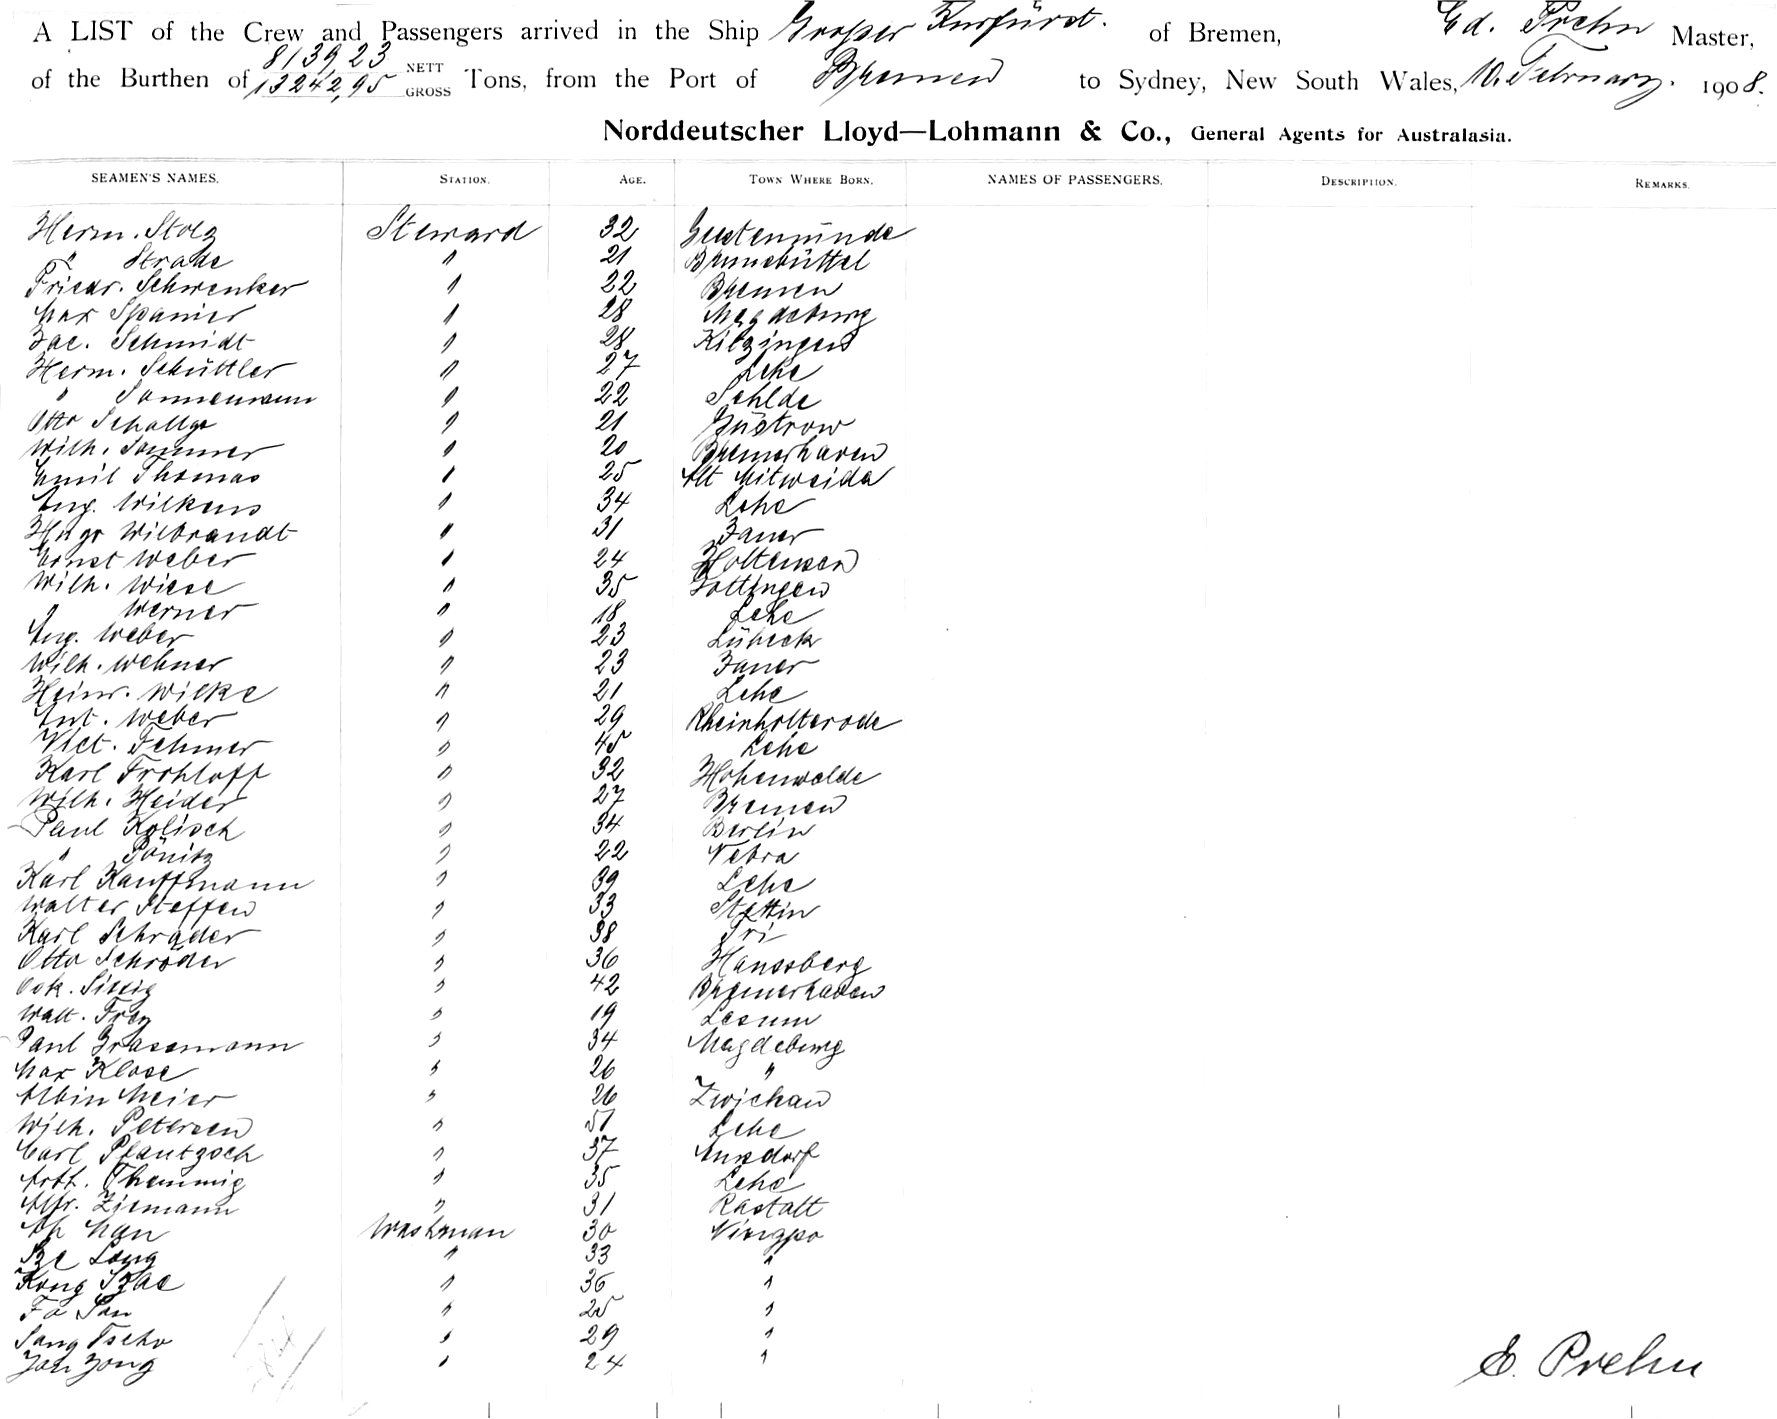 A LIST of the Crew and Passengers arrived in the Ship Grosser Kurfürst. of Bremen, Ed. Prehn Master,
of the Burthen of 8139,23 NETT 13242,95 GROSS Tons, from the Port of Bremen to Sydney, New South Wales, 10. February. 1908.
Norddeutscher Lloyd—Lohmann & Co., General Agents for Australasia.
SEAMEN'S NAMES. STATION. AGE. TOWN WHERE BORN. NAMES OF PASSENGERS. DESCRIPTION. REMARKS.
Herm. Stolz Steward 32 Geestemünde
" Strade " 21 Brunsbüttel
Friedr. Schwenker " 22 Bremen
Max Spanier " 28 Magdeburg
Jac. Schmidt " 28 Kitzingen
Herm. Schüttler " 27 Lehe
" Sonnemann " 22 Sehlde
Otto " 21 Güstrow
Wilh. Sommer " 20 Bremerhaven
Emil Thomas " 25 Alt Mitweida
Aug. Wilkens " 34 Lehe
Hugo Wilbrandt " 31 Jauer
Ernst Weber " 24 Holtensen
Wilh. Wiese " 35 Göttingen
" Werner " 18 Lehe
Aug. Weber " 23 Lübeck
Wilh. Wehner " 23 Jauer
Heinr. Wilke " 21 Lehe
Ant. Weber " 29 Rheinholterode
Vict. Fehmer " 45 Lehe
Karl Frohloff " 32 Hohenwalde
Wilh. Heider " 27 Bremen
Paul Kolisch " 34 Berlin
" Pönitz " 22 Nebra
Karl Kauffmann " 39 Lehe
Walter Steffen " 33 Stettin
Karl Schrader " 38
Otto Schröder " 36 Hansberg
Osk. " 42 Bremerhaven
Walt. Frey " 19 Lesum
Paul Grassmann " 34 Magdeburg
Max Klose " 26 "
Albin Meier " 26 Zwickau
Wilh. Petersen " 51 Lehe
Carl Plautzsch " 37
Arth. Themmig " 35 Lehe
Alfr. Ziemann " 31 Rastatt
Ah Man Washman 30 Ningpo
Sze Long " 33 "
Kong Tzae " 36 "
Fo San " 25 "
Sang Tscho " 29 "
Jah Zong " 24 "
E. Prehn